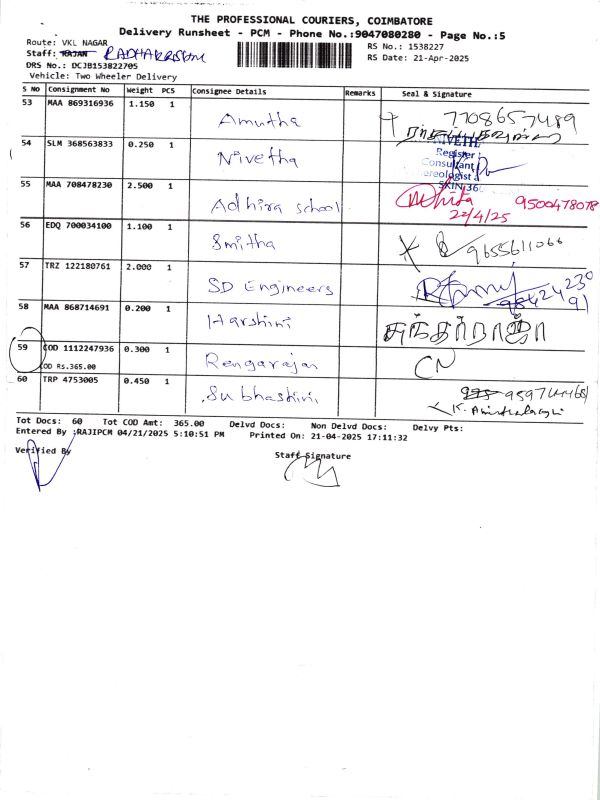 THE PROFESSIONAL COURIERS, COIMBATORE
Delivery Runsheet - PCM - Phone No.:9047080280 - Page No.:5
Route: VKL NAGAR
RS No.: 1538227
Staff: RAJAN RADHAKRISHNAN
RS Date: 21-Apr-2025
DRS No.: DCJB153822705
Vehicle: Two Wheeler Delivery
S No Consignment No Weight PCS Consignee Details Remarks Seal & Signature
53 MAA 869316936 1.150 1 Amutha 7708657489
54 SLM 368563833 0.250 1 Nivetha NIVETH
Register
Consultant
SKIN 360
55 MAA 708478230 2.500 1 Adhira school 9500478078
22/4/25
56 EDQ 700034100 1.100 1 Smitha 9655611066
57 TRZ 122180761 2.000 1 SD Engineers
58 MAA 868714691 0.200 1 Harshini
59 COD 1112247936 0.300 1 Rengarajan CN
COD Rs.365.00
60 TRP 4753005 0.450 1 Subhashini
Tot Docs: 60 Tot COD Amt: 365.00 Delvd Docs: Non Delvd Docs: Delvy Pts:
Entered By :RAJIPCM 04/21/2025 5:10:51 PM Printed On: 21-04-2025 17:11:32
Verified By Staff Signature